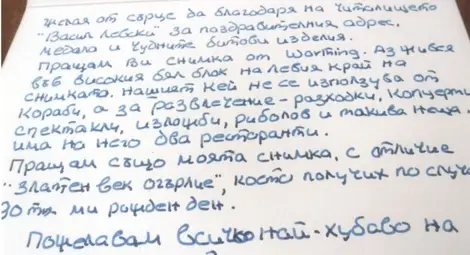 желая от сърце да благодаря на читалището
"Васил Левски" за поздравителния адрес,
медала и чудните битови изделия.
Пращам Ви снимка от Worthing. Аз живея
във високия бял блок на левия край на
снимката. Нашият кей не се използува от
кораби, а за развлечение - разходки, концерти
спектакли, изложби, риболов и такива неща.
има на него два ресторанти.
Пращам също моята снимка, с отличие
"Златен век огърлие", което получих по случ
30 та ми рожден ден.
Пожелавам всичко най-хубаво на